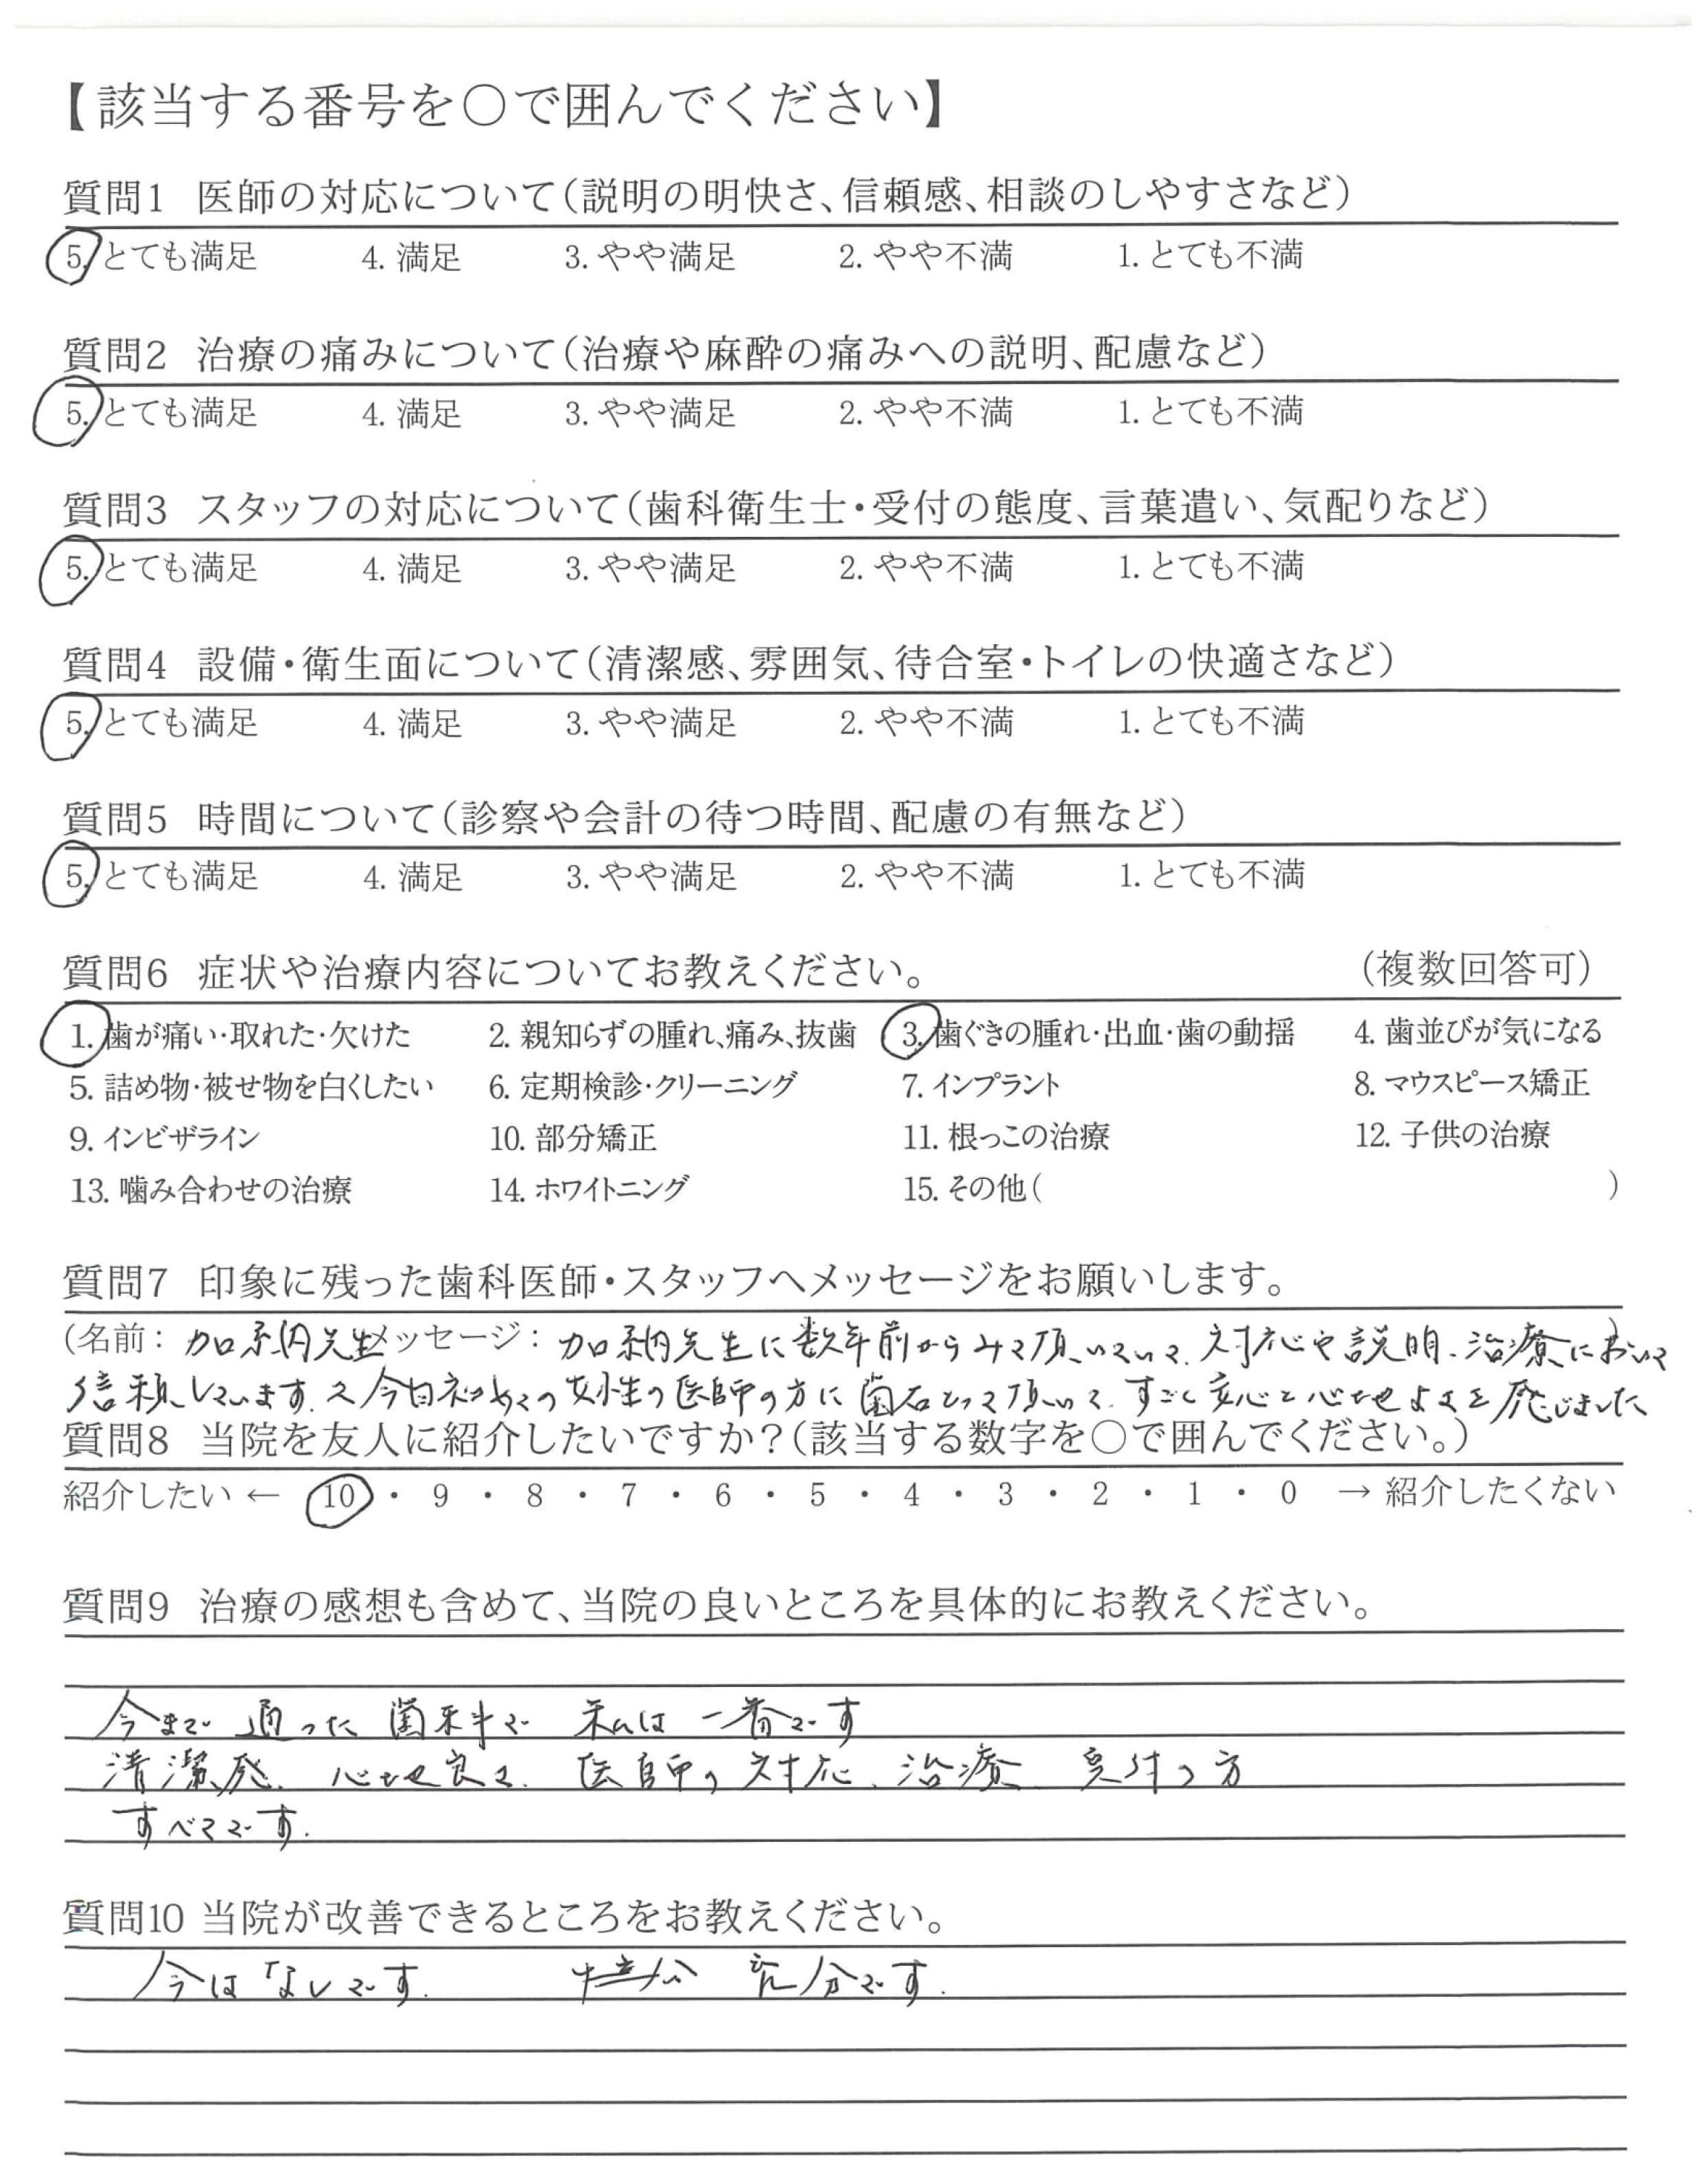 【該当する番号を〇で囲んでください】
質問1 医師の対応について(説明の明快さ、信頼感、相談のしやすさなど)
5. とても満足 4. 満足 3. やや満足 2. やや不満 1. とても不満
質問2 治療の痛みについて(治療や麻酔の痛みへの説明、配慮など)
5. とても満足 4. 満足 3. やや満足 2. やや不満 1. とても不満
質問3 スタッフの対応について(歯科衛生士・受付の態度、言葉遣い、気配りなど)
5. とても満足 4. 満足 3. やや満足 2. やや不満 1. とても不満
質問4 設備・衛生面について(清潔感、雰囲気、待合室・トイレの快適さなど)
5. とても満足 4. 満足 3. やや満足 2. やや不満 1. とても不満
質問5 時間について(診察や会計の待つ時間、配慮の有無など)
5. とても満足 4. 満足 3. やや満足 2. やや不満 1. とても不満
質問6 症状や治療内容についてお教えください。 (複数回答可)
1. 歯が痛い・取れた・欠けた 2. 親知らずの腫れ、痛み、抜歯 3. 歯ぐきの腫れ・出血・歯の動揺 4. 歯並びが気になる
5. 詰め物・被せ物を白くしたい 6. 定期検診・クリーニング 7. インプラント 8. マウスピース矯正
9. インビザライン 10. 部分矯正 11. 根っこの治療 12. 子供の治療
13. 噛み合わせの治療 14. ホワイトニング 15. その他( )
質問7 印象に残った歯科医師・スタッフへメッセージをお願いします。
(名前: 加納先生 メッセージ: 加納先生に数年前からみて頂いていて、対応や説明、治療において)
信頼しています。又今日初めての女性の医師の方に歯石とって頂いて、すごく安心と心地よさを感じました
質問8 当院を友人に紹介したいですか?(該当する数字を〇で囲んでください。)
紹介したい ← 10 ・ 9 ・ 8 ・ 7 ・ 6 ・ 5 ・ 4 ・ 3 ・ 2 ・ 1 ・ 0 → 紹介したくない
質問9 治療の感想も含めて、当院の良いところを具体的にお教えください。
今まで 通った 歯科で 私は 一番です
清潔感、心地良さ、医師の対応、治療 受付の方
すべてです。
質問10 当院が改善できるところをお教えください。
今はないです。 充分です。